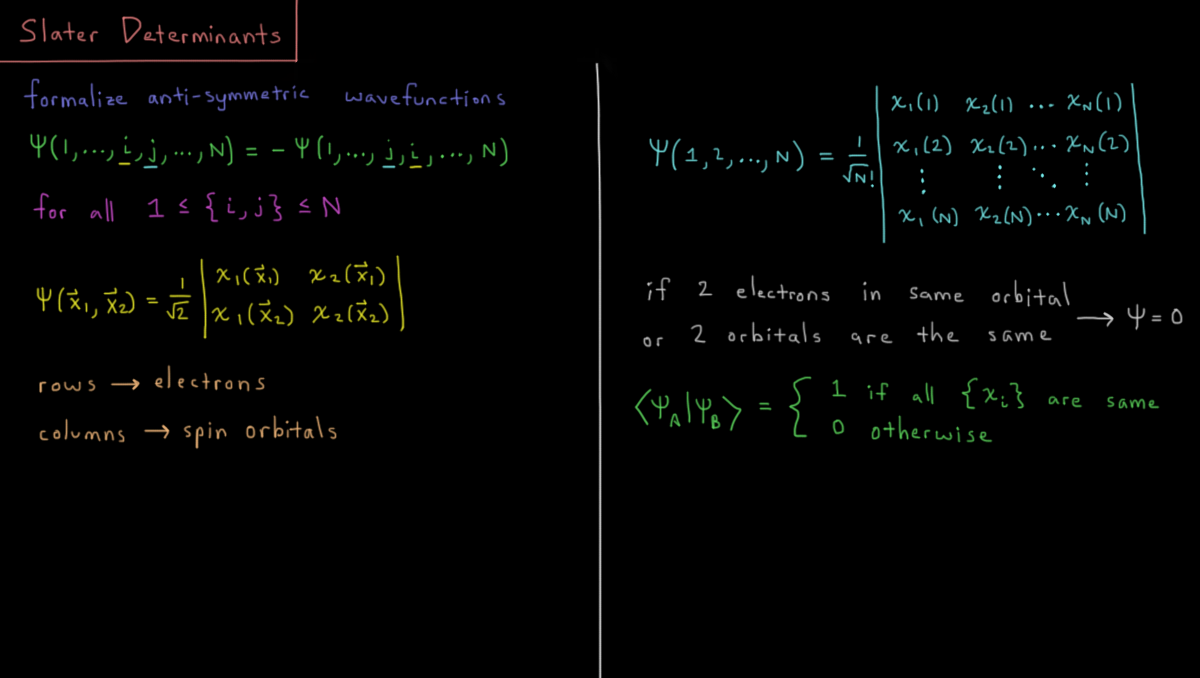 Slater Determinants
formalize anti-symmetric wavefunctions
Ψ(1,...,i,j,...,N) = -Ψ(1,...,j,i,...,N)
for all 1 ≤ {i,j} ≤ N
Ψ(x⃗₁, x⃗₂) = 1/√2 | χ₁(x⃗₁) χ₂(x⃗₁) |
| χ₁(x⃗₂) χ₂(x⃗₂) |
rows → electrons
columns → spin orbitals
Ψ(1,2,...,N) = 1/√N! | χ₁(1) χ₂(1) ... χN(1) |
| χ₁(2) χ₂(2) ... χN(2) |
| ⋮ ⋮ ⋱ ⋮ |
| χ₁(N) χ₂(N) ... χN(N) |
if 2 electrons in same orbital
or 2 orbitals are the same → Ψ = 0
⟨Ψ_A|Ψ_B⟩ = { 1 if all {χᵢ} are same
0 otherwise